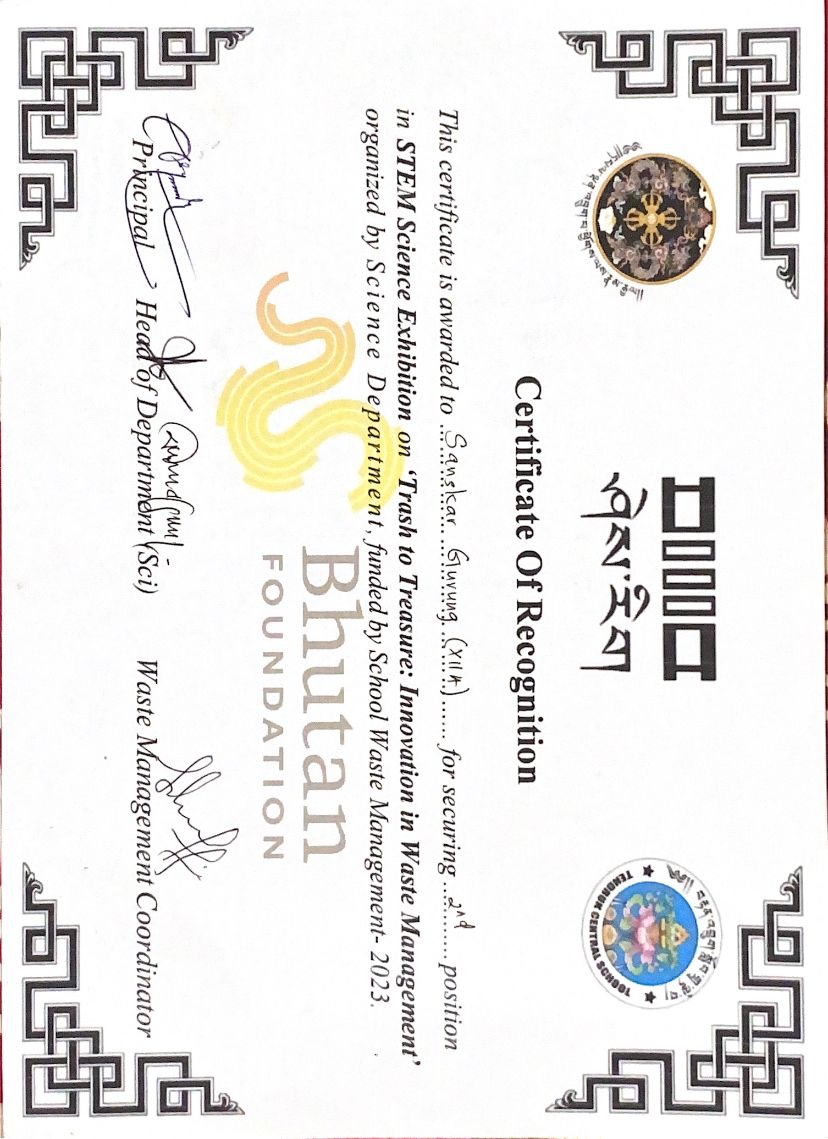 ཤེས་རིག
TENDRUK CENTRAL SCHOOL
Certificate Of Recognition
This certificate is awarded to ...Sanskar Gurung (XII A)...... for securing ....2nd........ position
in STEM Science Exhibition on ‘Trash to Treasure: Innovation in Waste Management’
organized by Science Department, funded by School Waste Management- 2023.
Bhutan
FOUNDATION
Principal Head of Department (Sci) Waste Management Coordinator